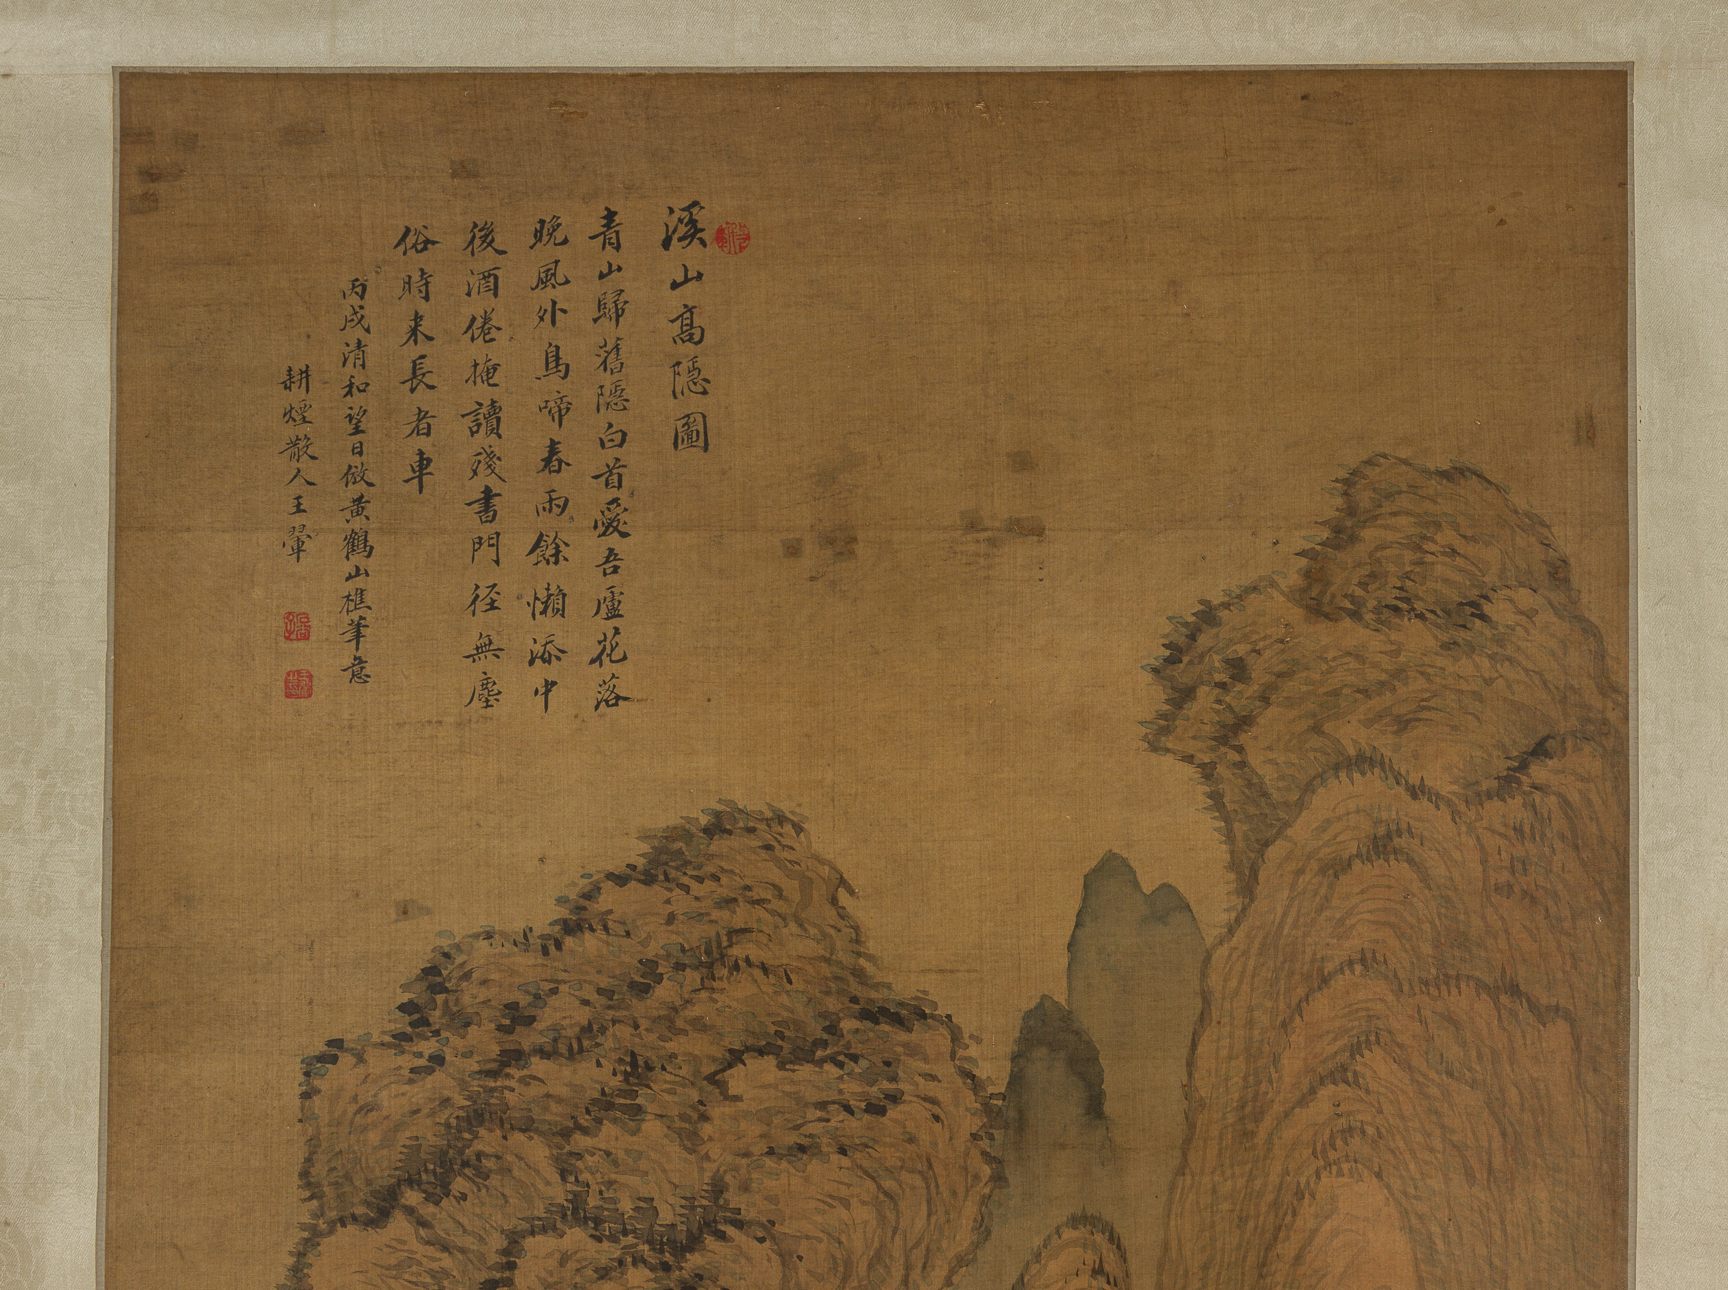 溪山高隱圖
青山歸舊隱白首愛吾廬花落
晚風外鳥啼春雨餘懶添中
後酒倦掩讀殘書門徑無塵
俗時来長者車
丙戌清和望日倣黃鶴山樵筆意
耕煙散人王翬